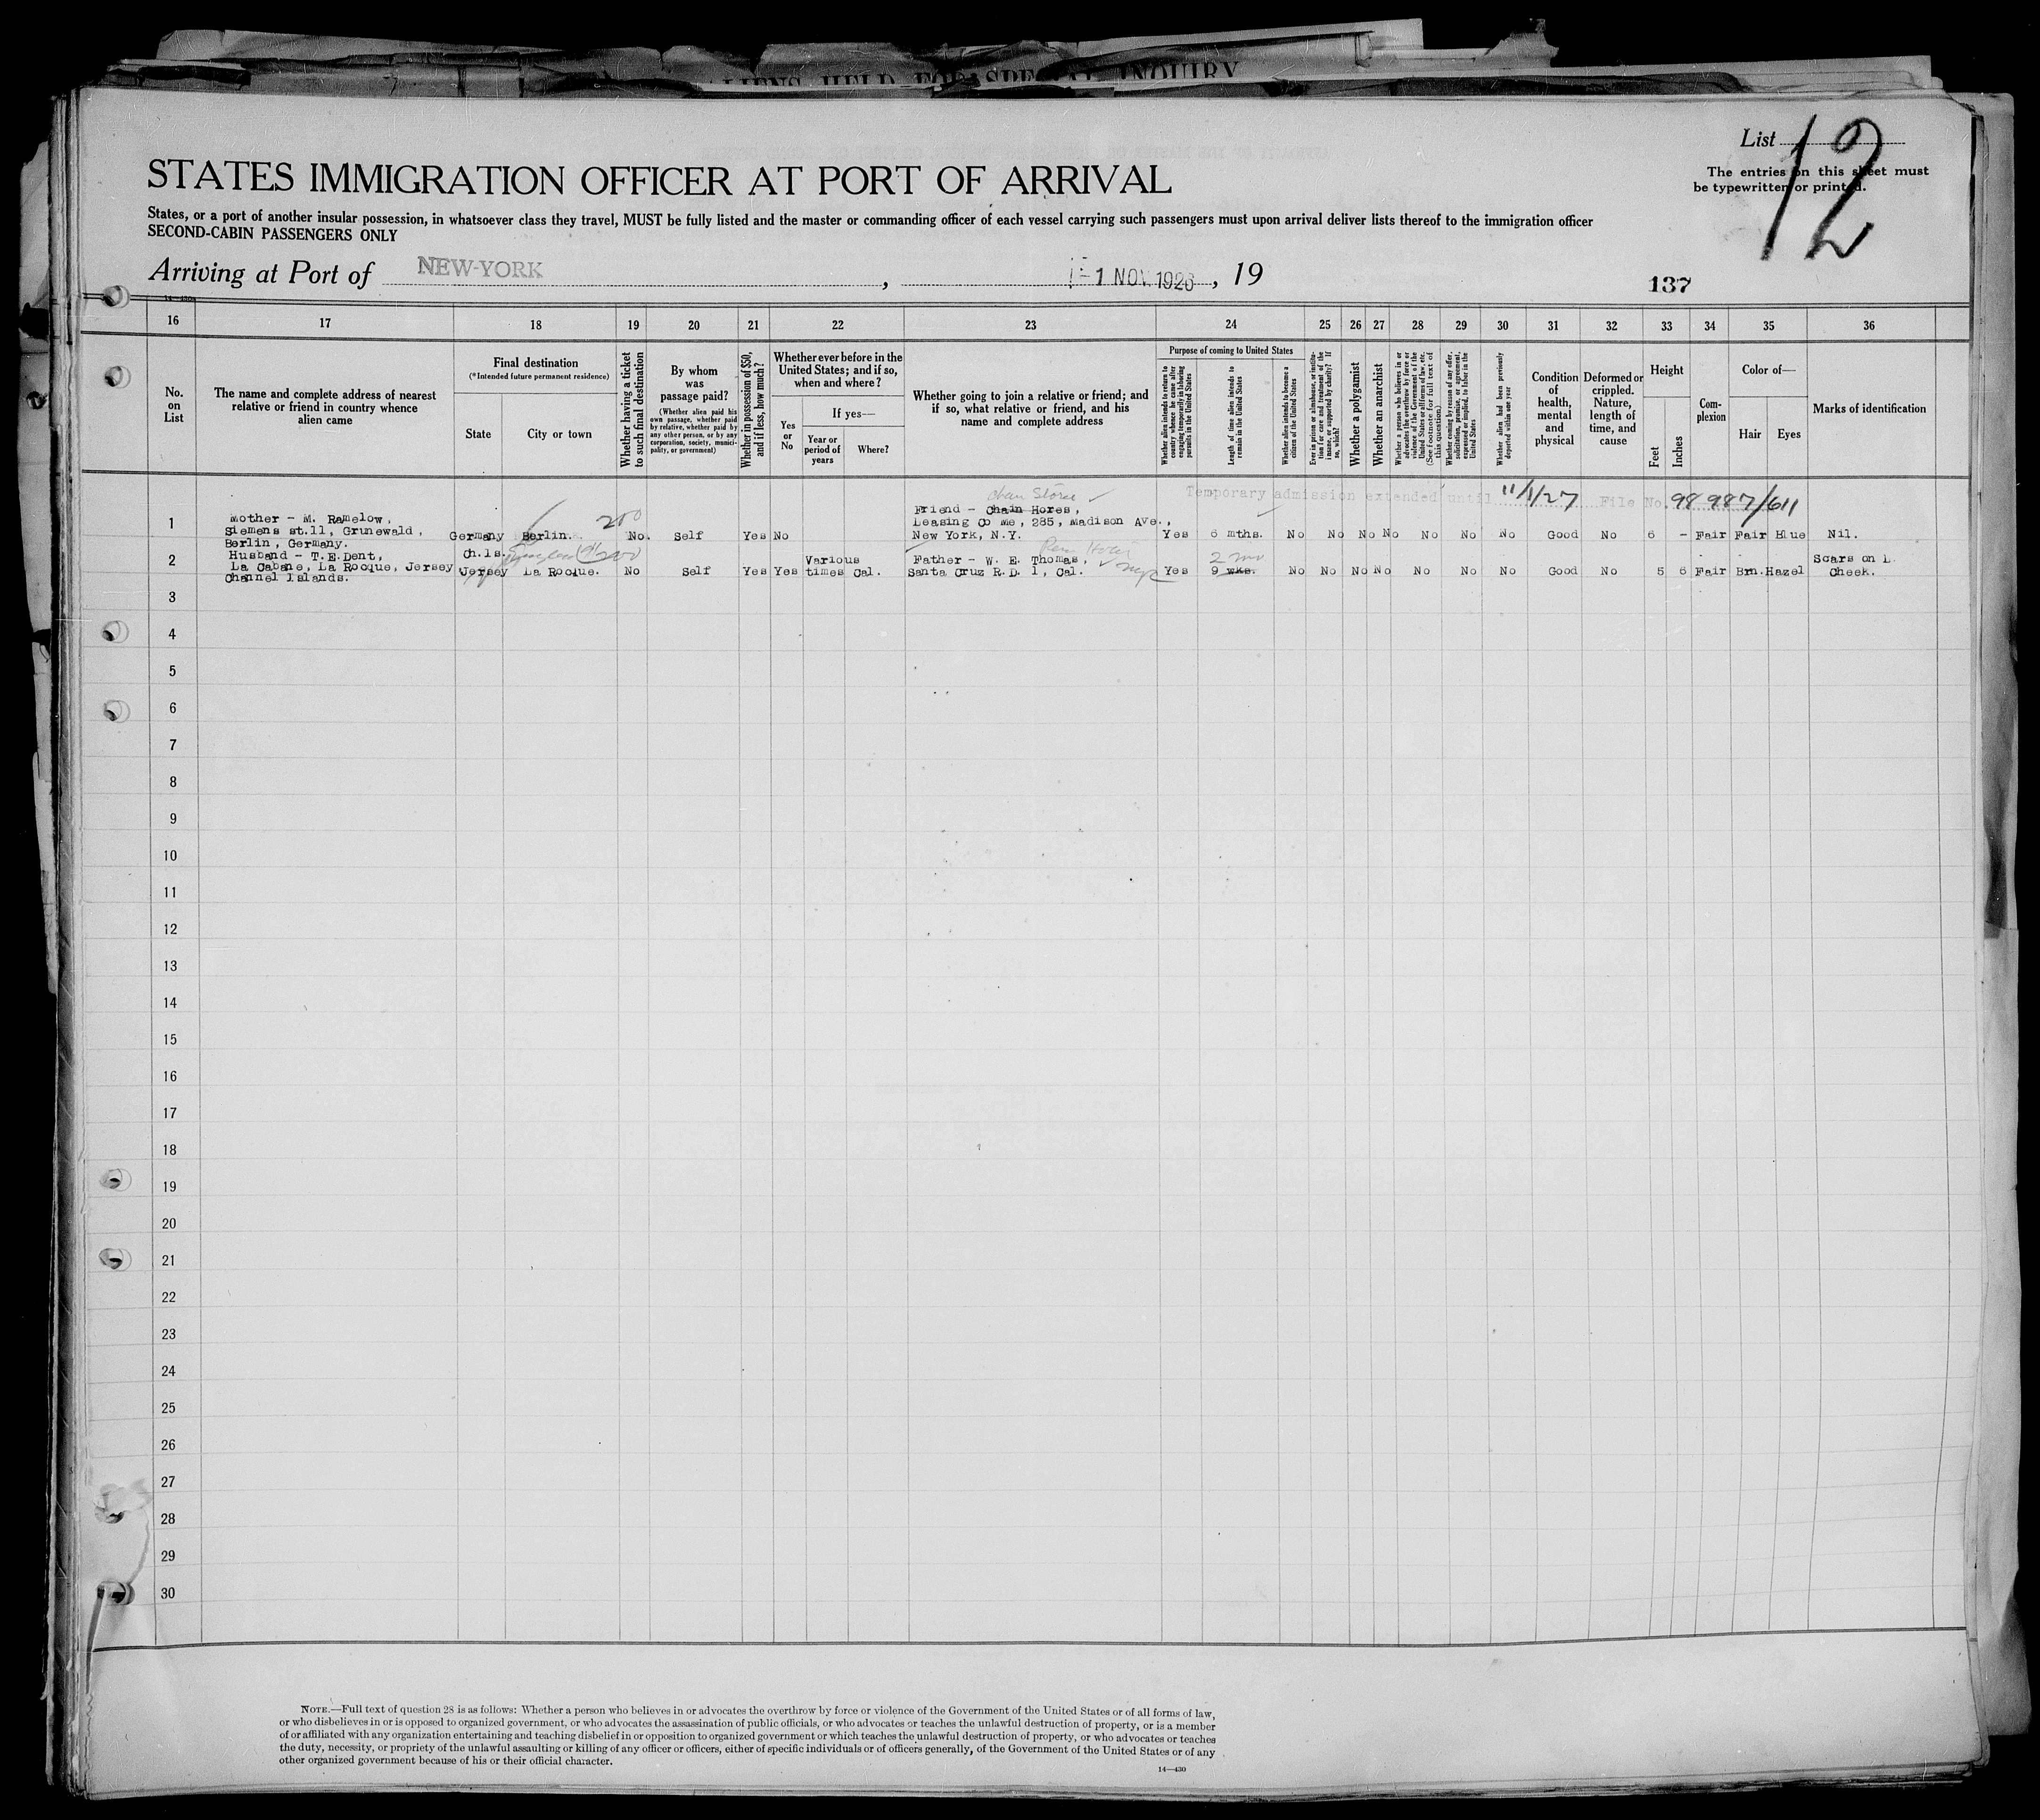 ALIENS HELD FOR SPECIAL INQUIRY
List 12
The entries on this sheet must
be typewritten or printed.
STATES IMMIGRATION OFFICER AT PORT OF ARRIVAL
States, or a port of another insular possession, in whatsoever class they travel, MUST be fully listed and the master or commanding officer of each vessel carrying such passengers must upon arrival deliver lists thereof to the immigration officer
SECOND-CABIN PASSENGERS ONLY
Arriving at Port of NEW-YORK, 1 NOV 1926, 19
137
16 17 18 19 20 21 22 23 24 25 26 27 28 29 30 31 32 33 34 35 36
No.
on
List
The name and complete address of nearest
relative or friend in country whence
alien came
Final destination
(*Intended future permanent residence)
State
City or town
Whether having a ticket
to such final destination
By whom
was
passage paid?
(Whether alien paid his
own passage, whether paid
by relative, whether paid by
any other person, or by any
corporation, society, munici-
pality, or government)
Whether in possession of $50,
and if less, how much?
Whether ever before in the
United States; and if so,
when and where?
Yes
or
No
If yes—
Year or
period of
years
Where?
Whether going to join a relative or friend; and
if so, what relative or friend, and his
name and complete address
Purpose of coming to United States
Whether alien intends to return to
country whence he came after
engaging temporarily in laboring
pursuits in the United States
Length of time alien intends to
remain in the United States
Whether alien intends to become a
citizen of the United States
Ever in prison or almshouse, or institu-
tion for care and treatment of the
insane, or supported by charity? If
so, which?
Whether a polygamist
Whether an anarchist
Whether a person who believes in or
advocates the overthrow by force or
violence of the Government of the
United States or all forms of law, etc.
(See footnote for full text of
this question.)
Whether coming by reason of any offer,
solicitation, promise, or agreement,
expressed or implied, to labor in the
United States
Whether alien had been previously
deported within one year
Condition
of
health,
mental
and
physical
Deformed or
crippled.
Nature,
length of
time, and
cause
Height
Feet
Inches
Com-
plexion
Color of—
Hair
Eyes
Marks of identification
Chain Stores
Temporary admission extended until 11/1/27 File No. 98987/611
1 Mother - M. Ramelow,
Siemens st.11, Grunewald,
Berlin, Germany.
Germany Berlin. 250 No. Self Yes No
Friend - Chain Hores,
Leasing Co me, 285, Madison Ave.,
New York, N.Y.
Yes 6 mths. No No No No No No No Good No 6 - Fair Fair Blue Nil.
2 Husband - T.E.Dent,
La Cabane, La Rocque, Jersey
Channel Islands.
Ch.ls. Jersey La Rocque. 200 No Self Yes Yes Various times Cal.
Father - W. E. Thomas,
Santa Cruz R.D. 1, Cal.
Yes 9 wks. No No No No No No No Good No 5 6 Fair Brn. Hazel Scars on L.
Cheek.
3
4
5
6
7
8
9
10
11
12
13
14
15
16
17
18
19
20
21
22
23
24
25
26
27
28
29
30
NOTE.—Full text of question 28 is as follows: Whether a person who believes in or advocates the overthrow by force or violence of the Government of the United States or of all forms of law,
or who disbelieves in or is opposed to organized government, or who advocates the assassination of public officials, or who advocates or teaches the unlawful destruction of property, or is a member
of or affiliated with any organization entertaining and teaching disbelief in or opposition to organized government or which teaches the unlawful destruction of property, or who advocates or teaches
the duty, necessity, or propriety of the unlawful assaulting or killing of any officer or officers, either of specific individuals or of officers generally, of the Government of the United States or of any
other organized government because of his or their official character.
14—430